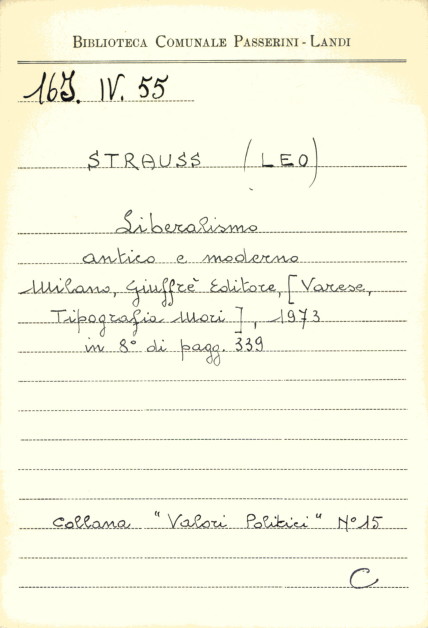 BIBLIOTECA COMUNALE PASSERINI - LANDI
16J. IV. 55
STRAUSS (LEO)
Liberalismo
antico e moderno
Milano, Giuffrè Editore, [Varese,
Tipografia Mori], 1973
in 8° di pagg. 339
Collana "Valori Politici" N° 15
C